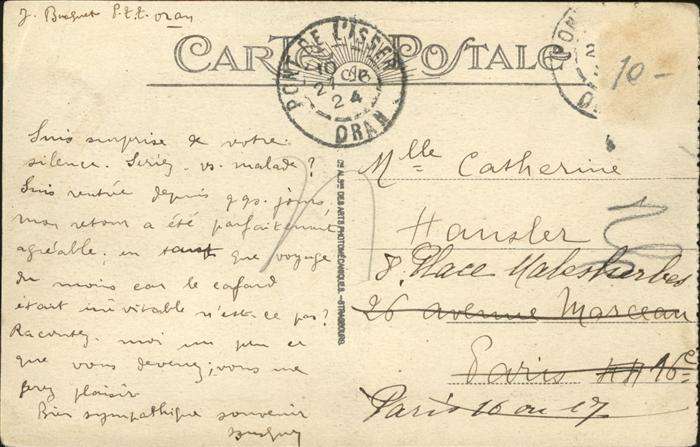 J. Buquet P.t.t. Oran
CARTE POSTALE
PONT DE L'ISSER
ORAN
10
24
10-
Suis surprise de votre
silence. Seriez-vs. malade?
Suis rentrée depuis qqs. jours,
mon retour a été parfaitement
agréable; en tant que voyage
du moins car le cafard
était inévitable n'est-ce pas?
Racontez-moi un peu ce
que vous devenez; vous me
ferez plaisir
Bien sympathique souvenir
Mlle Catherine
Hansler
8, Place Malesherbes
26 avenue Marceau
Paris 16e
Paris 16 ou 17
CIE ALSNE DES ARTS PHOTOMÉCANIQUES. - STRASBOURG